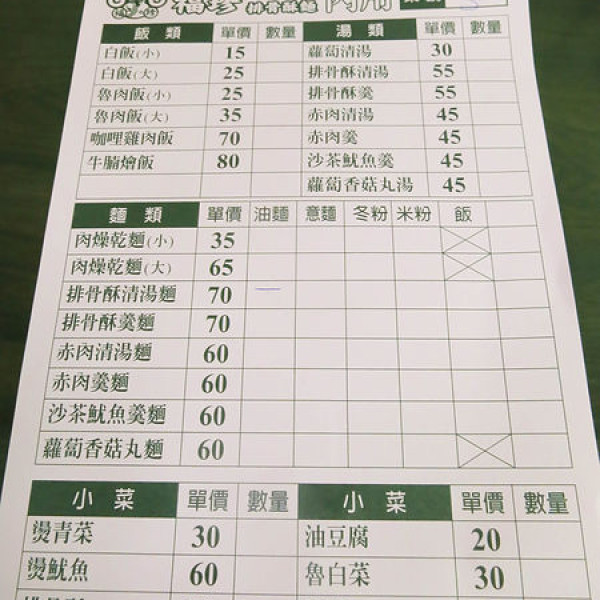 排骨酥麵 內用
飯類 單價 數量 湯類 單價 數量
白飯(小) 15 蘿蔔清湯 30
白飯(大) 25 排骨酥清湯 55
魯肉飯(小) 25 排骨酥羹 55
魯肉飯(大) 35 赤肉清湯 45
咖哩雞肉飯 70 赤肉羹 45
牛腩燴飯 80 沙茶魷魚羹 45
蘿蔔香菇丸湯 45
麵類 單價 油麵 意麵 冬粉 米粉 飯
肉燥乾麵(小) 35
肉燥乾麵(大) 65
排骨酥清湯麵 70
排骨酥羹麵 70
赤肉清湯麵 60
赤肉羹麵 60
沙茶魷魚羹麵 60
蘿蔔香菇丸麵 60
小菜 單價 數量 小菜 單價 數量
燙青菜 30 油豆腐 20
燙魷魚 60 魯白菜 30